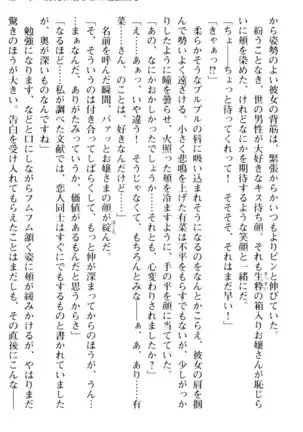 から姿勢のよい彼女の背筋は、緊張からかいつもよりピンと伸びていた。
紛うことなき、世の男性が大好きなキス待ち顔。それも生粋の箱入りお嬢さんが恥じらいに頬を染めた、けれどなにかを期待するような笑顔と一緒にだ。
「ちょ、ちょっと待ってくれって！　そそそ、それはまだ早い！」
「きゃぁっ!?」
柔らかそうなプルプルの唇に吸い込まれそうになるのをなんとかこらえ、彼女の肩を掴んで勢いよく遠ざける。小さく悲鳴を上げた有菜は不平をもらすでもないが、少しがっかりしたように瞳を曇らせ、火照った頬を冷ますように、手の平を顔に当てていた。
「あの、なにかおかしかったでしょう……それとも、心変わりされましたか？」
「まさか！　あっ、いや違う！　そうじゃなくて、もちろんとみな――ぇ、あ、あり……有菜……さん、のことは、好きなんだけど……」
名前を呼んだ瞬間、パァッとお嬢さまの顔が綻んだ。
「そ、そういうのは付き合ってしばらくして、もっと仲が深まってからのほうが、うん……まあなんだ、ありがたいっていうか、価値があるもんだと思うからさ」
「なるほど……私が調べた文献では、恋人同士はすぐにでもするものと書かれていましたが、奥が深いものなんですね」
勉強になります、などと口にしながらフムフム頷く姿に頬が緩みかけるが、やはりまだ驚きのほうが大きい。告白を受けてもらえたことはまだしも、その直後にこんな――